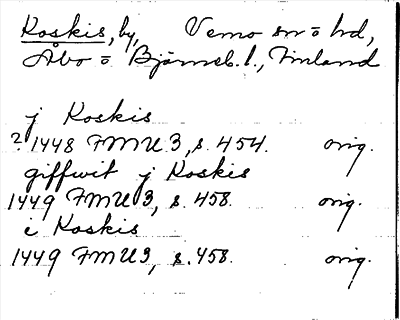 Koskis, by, Vemo sn o hd,
Åbo o Björneb. l., Finland
j Koskis
? 1448 FMU 3, s. 454. orig.
giffwit j Koskis
1449 FMU 3, s. 458. orig.
i Koskis
1449 FMU 3, s. 458. orig.